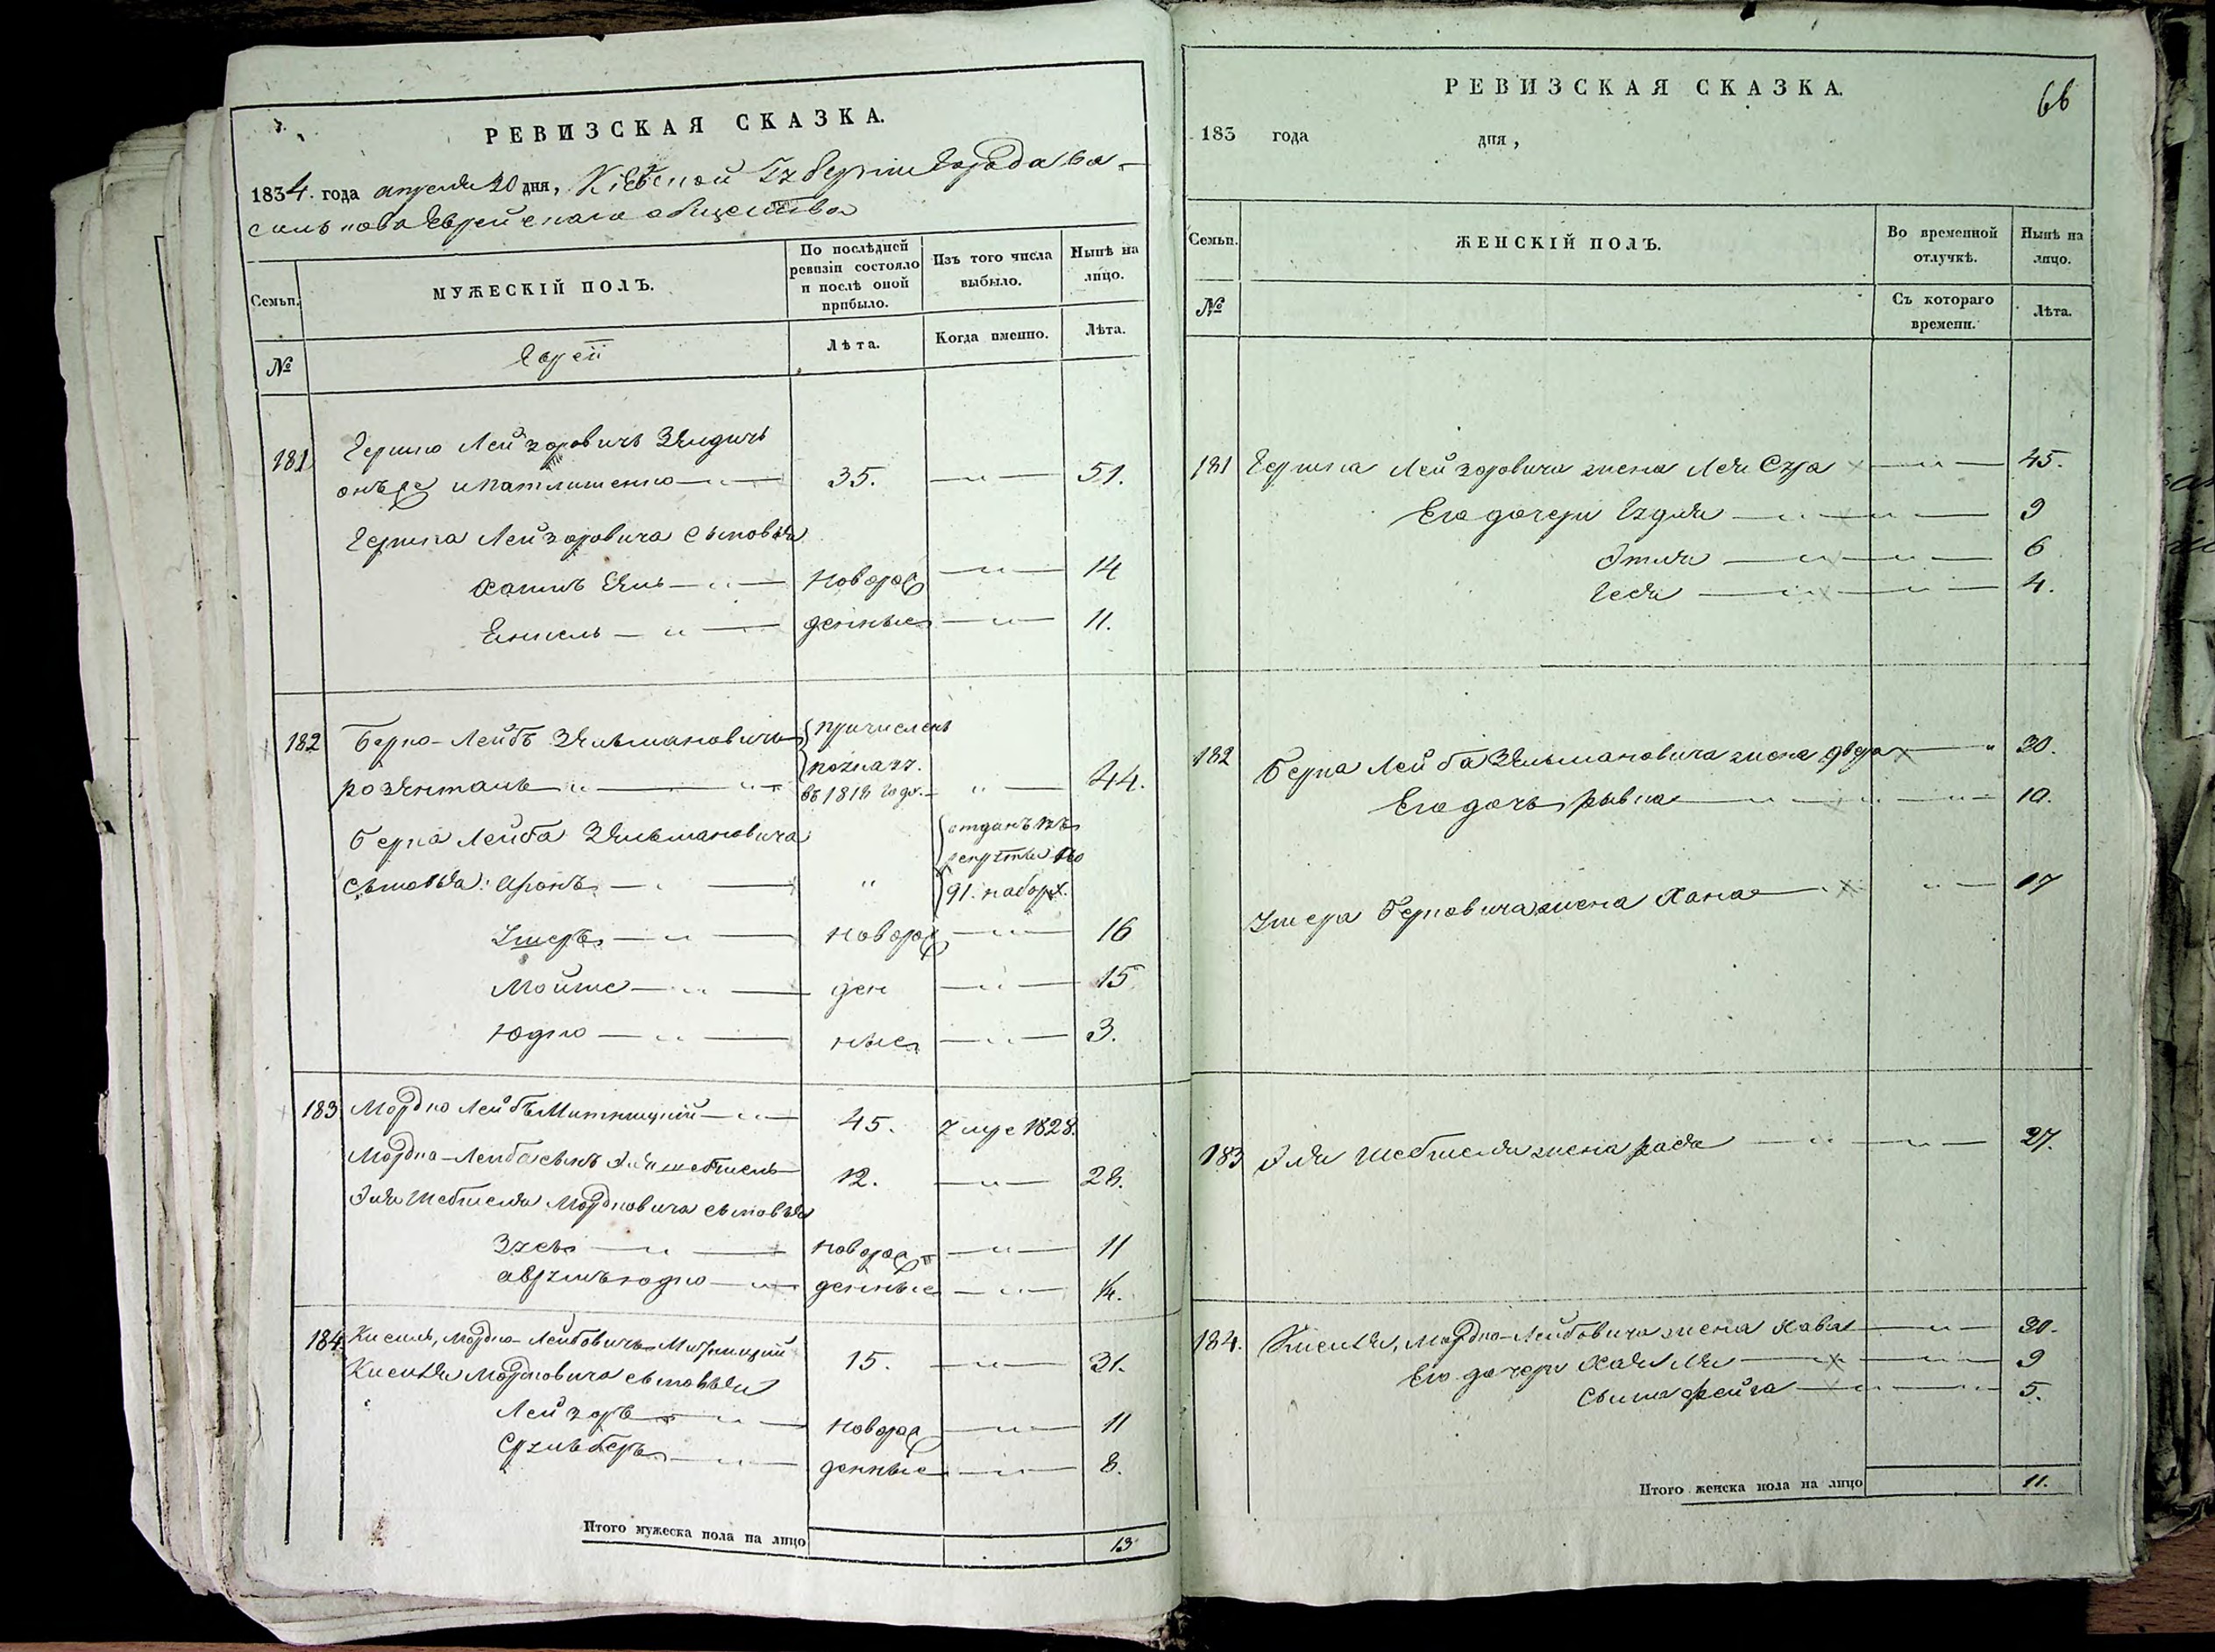 РЕВИЗСКАЯ СКАЗКА.
1834. года апреля 20 дня, Кіевской Губерніи города Ва-
силькова Еврейскаго общества
Семьи.
МУЖЕСКІЙ ПОЛЪ.
По послѣдней ревизіи состояло и послѣ оной прибыло.
Изъ того числа выбыло.
Нынѣ на лицо.
№
Еврей
Лѣта.
Когда именно.
Лѣта.
181 Гершко Лейзоровичъ Зейдичъ
онъ же 35. 51.
Гершка Лейзоровича сыновья
Хаимъ новорож 14
Енкель денные 11.
182 Берко-Лейбъ Зельмановичъ причисленъ
розенталь въ 1818 году. 44.
Берка Лейба Зельмановича отданъ въ
рекруты по
сыновья: Аронъ 91. набору.
Ушеръ новорож 16
Мойше ден 15
Юдко ные 3.
183 Мордко Лейбъ Митницкій 45. умре 1828.
Мордка-Лейба сынъ Эля шебшель 12. 28.
Эля Шебшеля Мордковича сыновья
Зусь новорож 11
Аврумъ юдко денные 4.
184. Кисиль, Мордко-Лейбовичъ Митницкій 15. 31.
Кисиля Мордковича сыновья
Лейзоръ новорож 11
Срульберъ денные 8.
Итого мужеска пола на лицо 13
РЕВИЗСКАЯ СКАЗКА.
66
183 года дня,
Семьи.
ЖЕНСКІЙ ПОЛЪ.
Во временной отлучкѣ.
Нынѣ на лицо.
№
Съ котораго времени.
Лѣта.
181 Гершка Лейзоровича жена Лея Сура 45.
Его дочери Гудля 9
Этля 6
Геся 4.
182 Берка Лейба Зельмановича жена двора 30.
Его дочь рывка 10.
Ушера Берковича жена Хана 17
183 Эля Шебшеля жена рася 27.
184. Кисиля, Мордка-Лейбовича жена Хава 30.
Его дочери Хая Лея 9
Сыма фейга 5.
Итого женска пола на лицо 11.